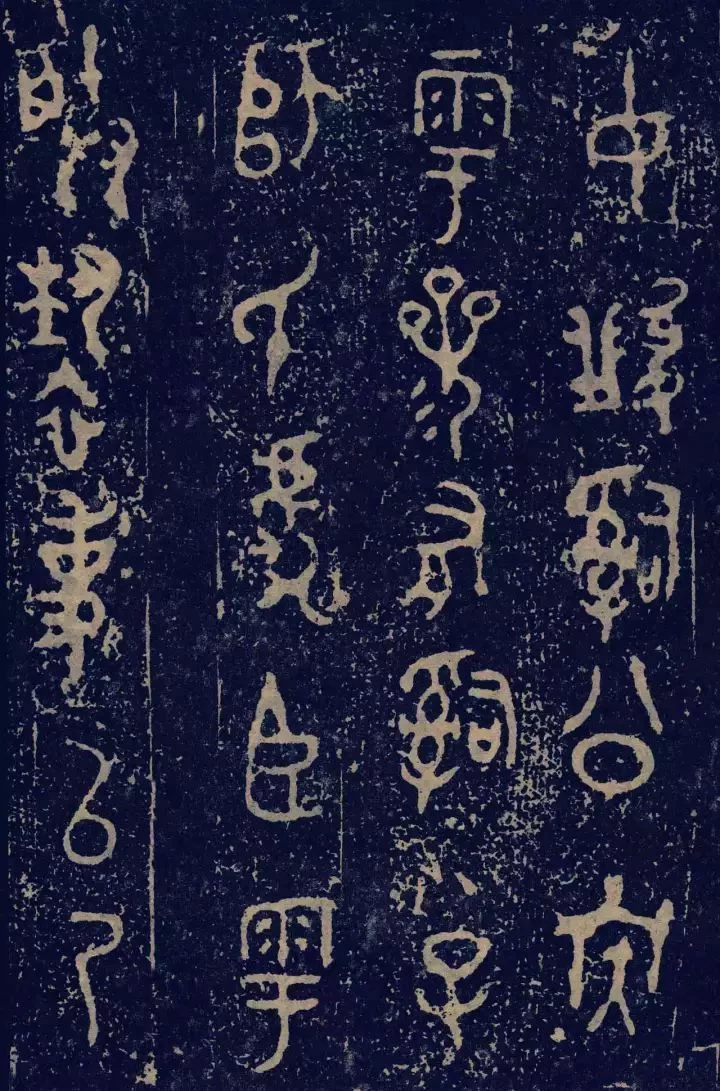 𤔲公族
雩參有𤔲小子
師氏虎臣雩
朕褻事㠯乃